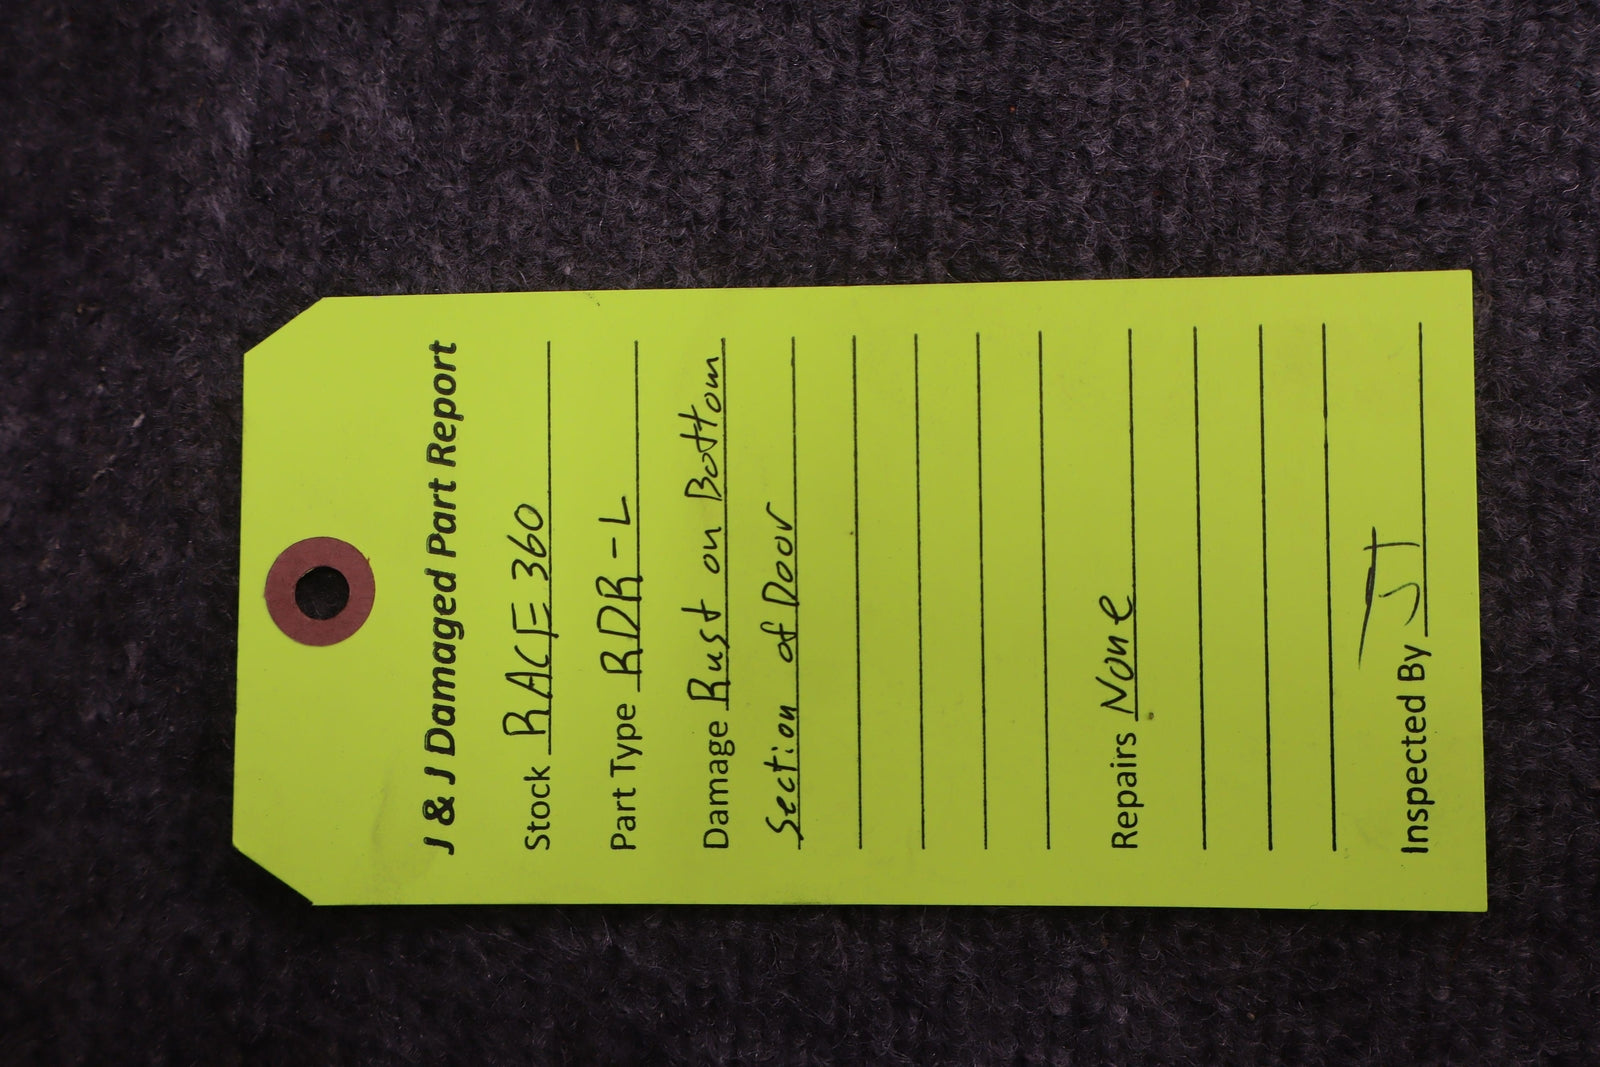 J & J Damaged Part Report
Stock RACE360
Part Type RDR-L
Damage Rust on Bottom
Section of Door
Repairs None
Inspected By JT